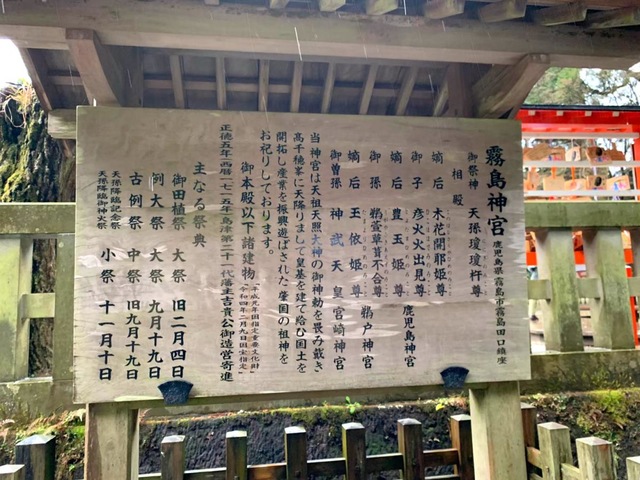 霧島神宮 鹿児島県霧島市霧島田口鎮座
御祭神 天孫瓊瓊杵尊
相殿
嫡后 木花開耶姫尊
御子 彦火火出見尊 鹿児島神宮
嫡后 豊玉姫尊
御孫 鸕鷀草葺不合尊 鵜戸神宮
嫡后 玉依姫尊
御曽孫 神武天皇 宮崎神宮
当神宮は天祖天照大神の御神勅を畏み戴き
高千穂峯に天降りまして皇基を建て給ひ国土を
開拓し産業を振興遊ばされた肇国の祖神を
お祀りしております。
御本殿以下諸建物
平成元年国指定重要文化財
令和四年二月九日国宝指定
正徳五年西暦一七一五年島津第二十一代藩主吉貴公御造営寄進
主なる祭典
御田植祭 大祭 旧二月四日
例大祭 大祭 九月十九日
古例祭 中祭 旧九月十九日
天孫降臨記念祭
天孫降臨御神火祭 小祭 十一月十日